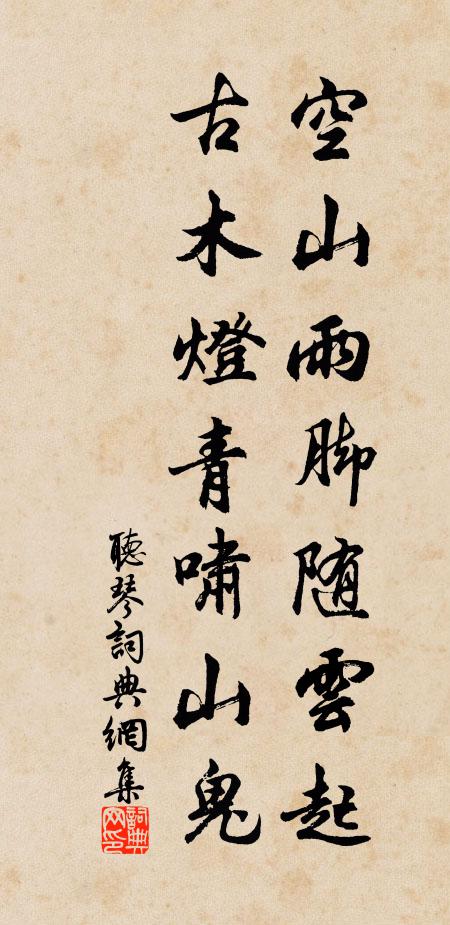 空山雨脚随雲起
古木燈青嘯山鬼
聽琴詞典網集
詞典網印